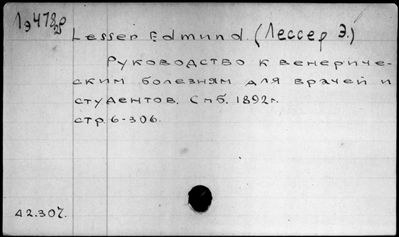 Lesser Edmund. (Лессер Э.)
Руководство к венериче-
ским болезням для врачей и
студентов. Спб. 1892г.
стр. 6-306.
42.307.